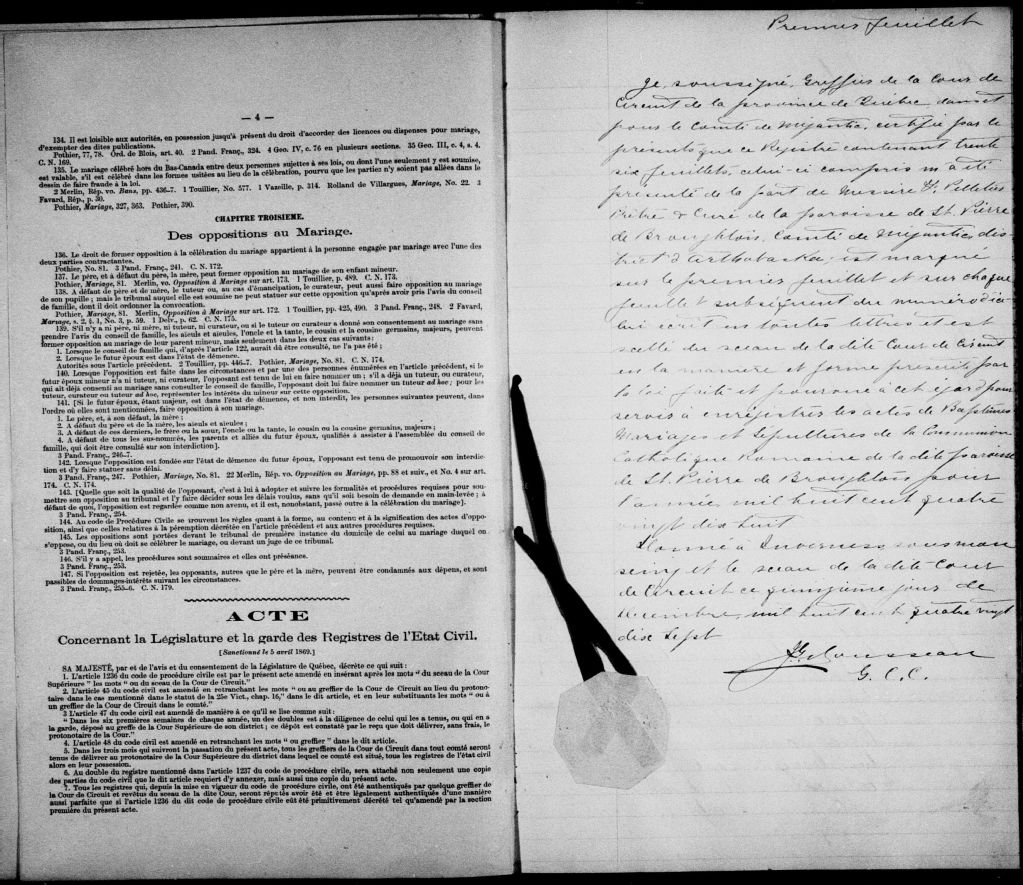 — 4 —
134. Il est loisible aux autorités, en possession jusqu'à présent du droit d'accorder des licences ou dispenses pour mariage,
d'exempter des dites publications.
Pothier, 77, 78. Ord. de Blois, art. 40. 2 Pand. Franç., 324. 4 Geo. IV, c. 76 en plusieurs sections. 35 Geo. III, c. 4, s. 4.
C. N. 169.
135. Le mariage célébré hors du Bas-Canada entre deux personnes sujettes à ses lois, ou dont l'une seulement y est soumise,
est valable, s'il est célébré dans les formes usitées au lieu de la célébration, pourvu que les parties n'y soient pas allées dans le
dessin de faire fraude à la loi.
2 Merlin, Rép. vo. Bans, pp. 436-7. 1 Touillier, No. 577. 1 Vazeille, p. 314. Rolland de Villargues, Mariage, No. 22. 3
Favard, Rép., p. 30.
Pothier, Mariage, 327, 363. Pothier, 390.
CHAPITRE TROISIEME.
Des oppositions au Mariage.
136. Le droit de former opposition à la célébration du mariage appartient à la personne engagée par mariage avec l'une des
deux parties contractantes.
Pothier, No. 81. 3 Pand. Franç., 241. C. N. 172.
137. Le père, et à défaut du père, la mère, peut former opposition au mariage de son enfant mineur.
Pothier, Mariage, 81. Merlin, vo. Opposition à Mariage sur art. 173. 1 Touillier, p. 489. C. N. 173.
138. A défaut de père et de mère, le tuteur ou, au cas d'émancipation, le curateur, peut aussi faire opposition au mariage
de son pupille; mais le tribunal auquel elle est soumise ne peut statuer sur cette opposition qu'après avoir pris l'avis du conseil
de famille, dont il doit ordonner la convocation.
Pothier, Mariage, 81. Merlin, Opposition à Mariage sur art. 172. 1 Touillier, pp. 425, 490. 3 Pand. Franç., 248. 2 Favard,
Mariage, s. 2, § 1, No. 3, p. 59. 1 Delv., p. 62. C. N. 175.
139. S'il n'y a ni père, ni mère, ni tuteur, ni curateur, ou si le tuteur ou curateur a donné son consentement au mariage sans
prendre l'avis du conseil de famille, les aïeuls et aïeules, l'oncle et la tante, le cousin et la cousine germains, majeurs, peuvent
former opposition au mariage de leur parent mineur, mais seulement dans les deux cas suivants:
1. Lorsque le conseil de famille qui, d'après l'article 122, aurait dû être consulté, ne l'a pas été;
2. Lorsque le futur époux est dans l'état de démence.
Autorités sous l'article précédent. 2 Touillier, pp. 446-7. Pothier, Mariage, No. 81. C. N. 174.
140. Lorsque l'opposition est faite dans les circonstances et par une des personnes énumérées en l'article précédent, si le
futur époux mineur n'a ni tuteur, ni curateur, l'opposant est tenu de lui en faire nommer un; s'il a déjà un tuteur, ou curateur,
qui ait déjà consenti au mariage sans consulter le conseil de famille, l'opposant doit lui faire nommer un tuteur ad hoc; pour les
tuteur, curateur ou tuteur ad hoc, représenter les intérêts du mineur sur cette opposition.
141. [Si le futur époux, étant majeur, est dans l'état de démence, et non interdit, les personnes suivantes peuvent, dans
l'ordre où elles sont mentionnées, faire opposition à son mariage.
1. Le père, et, à son défaut, la mère;
2. A défaut du père et de la mère, les aïeuls et aïeules;
3. A défaut de ces derniers, le frère ou la sœur, l'oncle ou la tante, le cousin ou la cousine germains, majeurs;
4. A défaut de tous les sus-nommés, les parents et alliés du futur époux, qualifiés à assister à l'assemblée du conseil de
famille, qui doit être consulté sur son interdiction].
3 Pand. Franç., 246-7.
142. Lorsque l'opposition est fondée sur l'état de démence du futur époux, l'opposant est tenu de promouvoir son interdic-
tion et d'y faire statuer sans délai.
3 Pand. Franç., 247. Pothier, Mariage, No. 81. 22 Merlin, Rép. vo. Opposition au Mariage, pp. 88 et suiv., et No. 4 sur art.
174. C. N. 174.
143. [Quelque soit la qualité de l'opposant, c'est à lui à adopter et suivre les formalités et procédures requises pour sou-
mettre son opposition au tribunal et l'y faire décider sous les délais voulus, sans qu'il soit besoin de demande en main-levée; à
défaut de quoi, l'opposition est regardée comme non avenu, et il est, nonobstant, passé outre à la célébration du mariage].
3 Pand. Franç., 254.
144. Au code de Procédure Civile se trouvent les règles quant à la forme, au content et à la signification des actes d'oppo-
sition, ainsi que celles relatives à la péremption décrétée en l'article précédent et aux autres procédures requises.
145. Les oppositions sont portées devant le tribunal de première instance du domicile de celui au mariage duquel on
s'oppose, ou du lieu où doit se célébrer le mariage, ou devant un juge de ce tribunal.
3 Pand. Franç., 253.
146. S'il y a appel, les procédures sont sommaires et elles ont préséance.
3 Pand. Franç., 253.
147. Si l'opposition est rejetée, les opposants, autres que le père et la mère, peuvent être condamnés aux dépens, et sont
passibles de dommages-intérêts suivant les circonstances.
3 Pand. Franç., 255-6. C. N. 179.
ACTE
Concernant la Législature et la garde des Registres de l'Etat Civil.
[Sanctionné le 5 avril 1869.]
SA MAJESTÉ, par et de l'avis et du consentement de la Législature de Québec, décrète ce qui suit:
1. L'article 1236 du code de procédure civile est par le présent acte amendé en insérant après les mots " du sceau de la Cour
Supérieure " les mots " ou du sceau de la Cour de Circuit."
2. L'article 45 du code civil est amendé en retranchant les mots " ou au greffier de la Cour de Circuit au lieu du protono-
taire dans le cas mentionné dans le statut de la 25e Vict., chap. 16," dans le dit article, et en leur substituant les mots " ou à
un greffier de la Cour de Circuit dans le comté."
3 L'article 47 du code civil est amendé de manière à ce qu'il se lise comme suit:
" Dans les six premières semaines de chaque année, un des doubles est à la diligence de celui qui les a tenus, ou qui en a
la garde, déposé au greffe de la Cour Supérieure de son district; ce dépôt est constaté par le reçu que doit délivrer, sans frais, le
protonotaire de la Cour."
4. L'article 48 du code civil est amendé en retranchant les mots " ou greffier " dans le dit article.
5. Dans les trois mois qui suivront la passation du présent acte, tous les greffiers de la Cour de Circuit dans tout comté seront
tenus de délivrer au protonotaire de la Cour Supérieure du district dans lequel ce comté est situé, tous les registres de l'état civil
alors en leur possession.
6. Au double du registre mentionné dans l'article 1237 du code de procédure civile, sera attaché non seulement une copie
des parties du code civil que le dit article requiert d'y annexer, mais aussi une copie du présent acte.
7. Tous les registres qui, depuis la mise en vigueur du code de procédure civile, ont été authentiqués par quelque greffier de
la Cour de Circuit et revêtus du sceau de la dite Cour, seront réputés avoir été et être légalement authentiqués d'une manière
aussi parfaite que si l'article 1236 du dit code de procédure civile eût été primitivement décrété tel qu'amendé par la section
première du présent acte.
Premier feuillet
Je, soussigné, Greffier de la Cour de
Circuit de la province de Québec dans et
pour le Comté de Mégantic, certifie par le
présents que ce Registre contenant trente
six feuillets, celui-ci compris m'a été
présenté de la part de Messire Pelletier
Prêtre & Curé de la paroisse de St. Pierre
de Broughton, Comté de Mégantic, dis-
trict d'Arthabaska; est marqué
sur le premier feuillet et sur chaque
feuillet subséquent du numéro d'ice-
lui écrit en toutes lettres et est
scellé du sceau de la dite Cour de Circuit
en la manière & forme prescrits par
la loi faite et pourvue à cet égard pour
servir à enrégistrer les actes de Baptêmes
Mariages et Sépultures de la Communion
Catholique Romaine de la dite paroisse
de St. Pierre de Broughton pour
l'année mil huit cent quatre
vingt dix huit
Donné à Inverness sous mon
seing et le sceau de la dite Cour
de Circuit ce quinzième jour de
Décembre mil huit cent quatre vingt
dix sept
Rousseau
G. C. C.